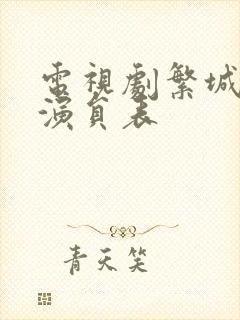 電視劇繁城
演員表
青天笑